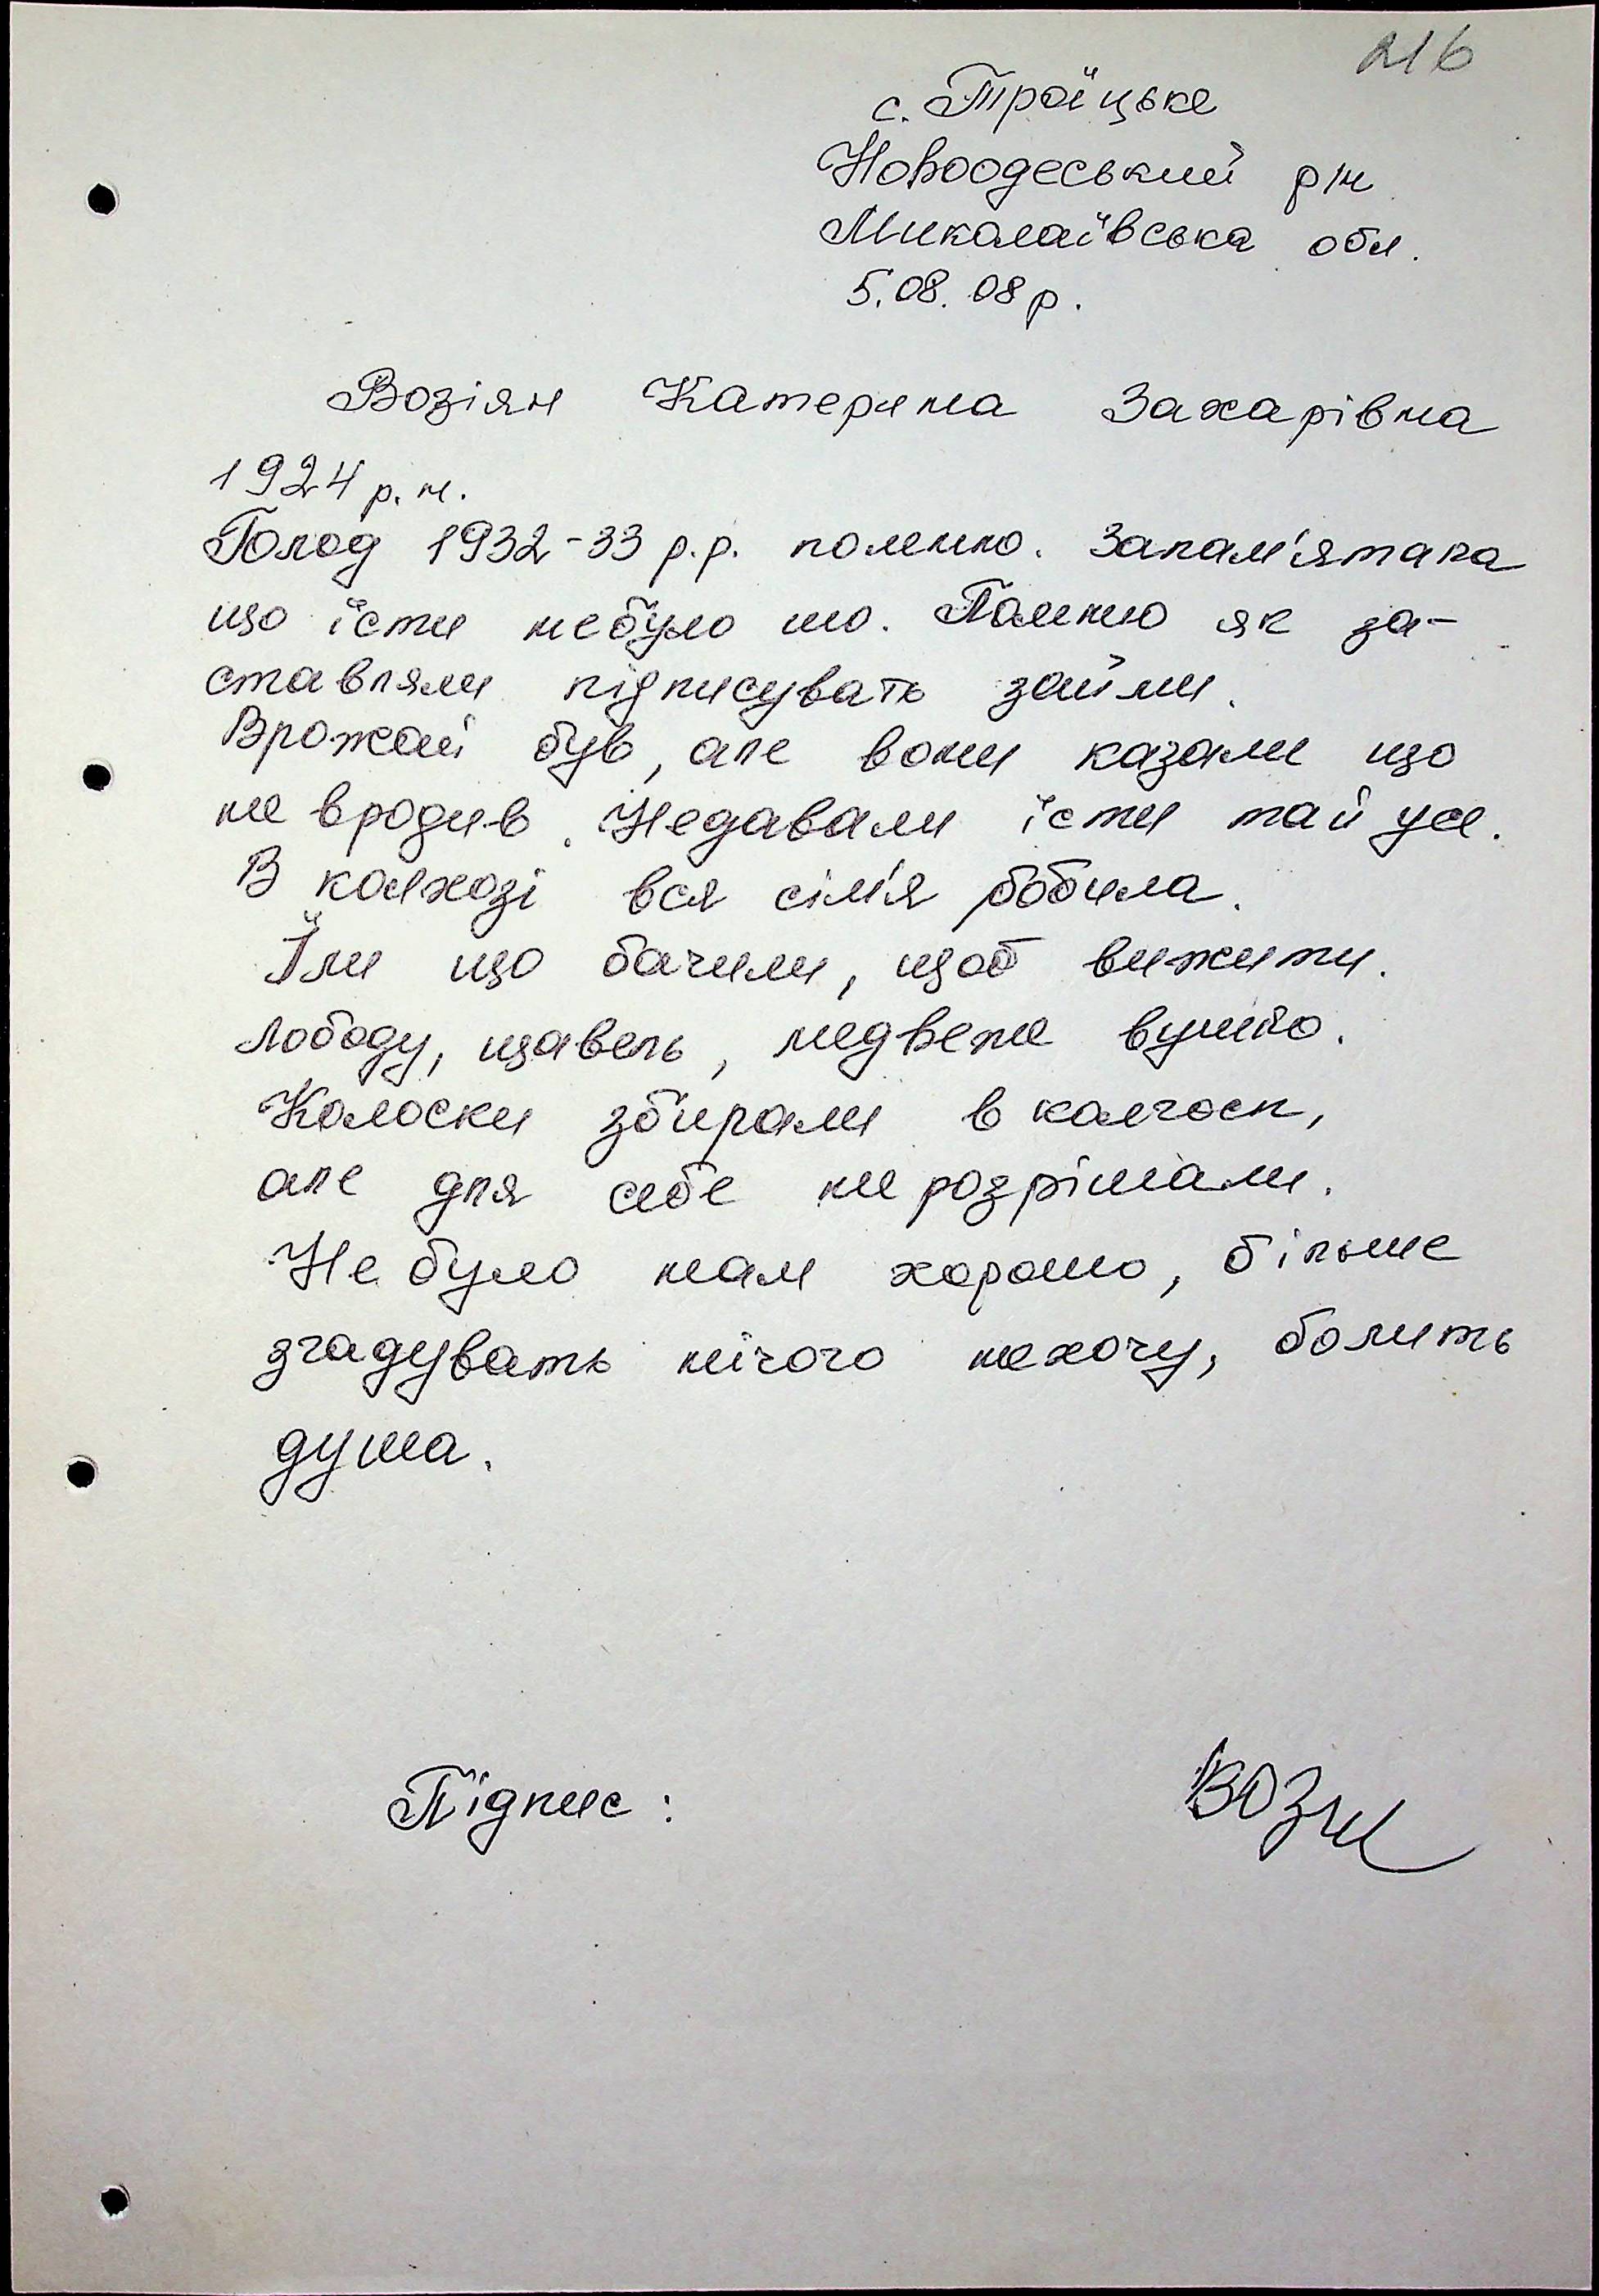 216
с. Троїцьке
Новоодеський р/н
Миколаївська обл.
5.08.08 р.
Возіян Катерина Захарівна
1924 р.н.
Голод 1932-33 р.р. помню. Запам'ятала
що їсти небуло шо. Помню як за-
ставляли підписувать займи.
Врожай був, але вони казали що
не вродив. Недавали їсти тай усе.
В колхозі вся сім'я робила.
Їли що бачили, щоб вижити.
Лободу, щавель, медвеже вушко.
Колоски збирали в колгосп,
але для себе не розрішали.
Не було нам хорошо, більше
згадувать нічого нехочу, болить
душа.
Підпис: